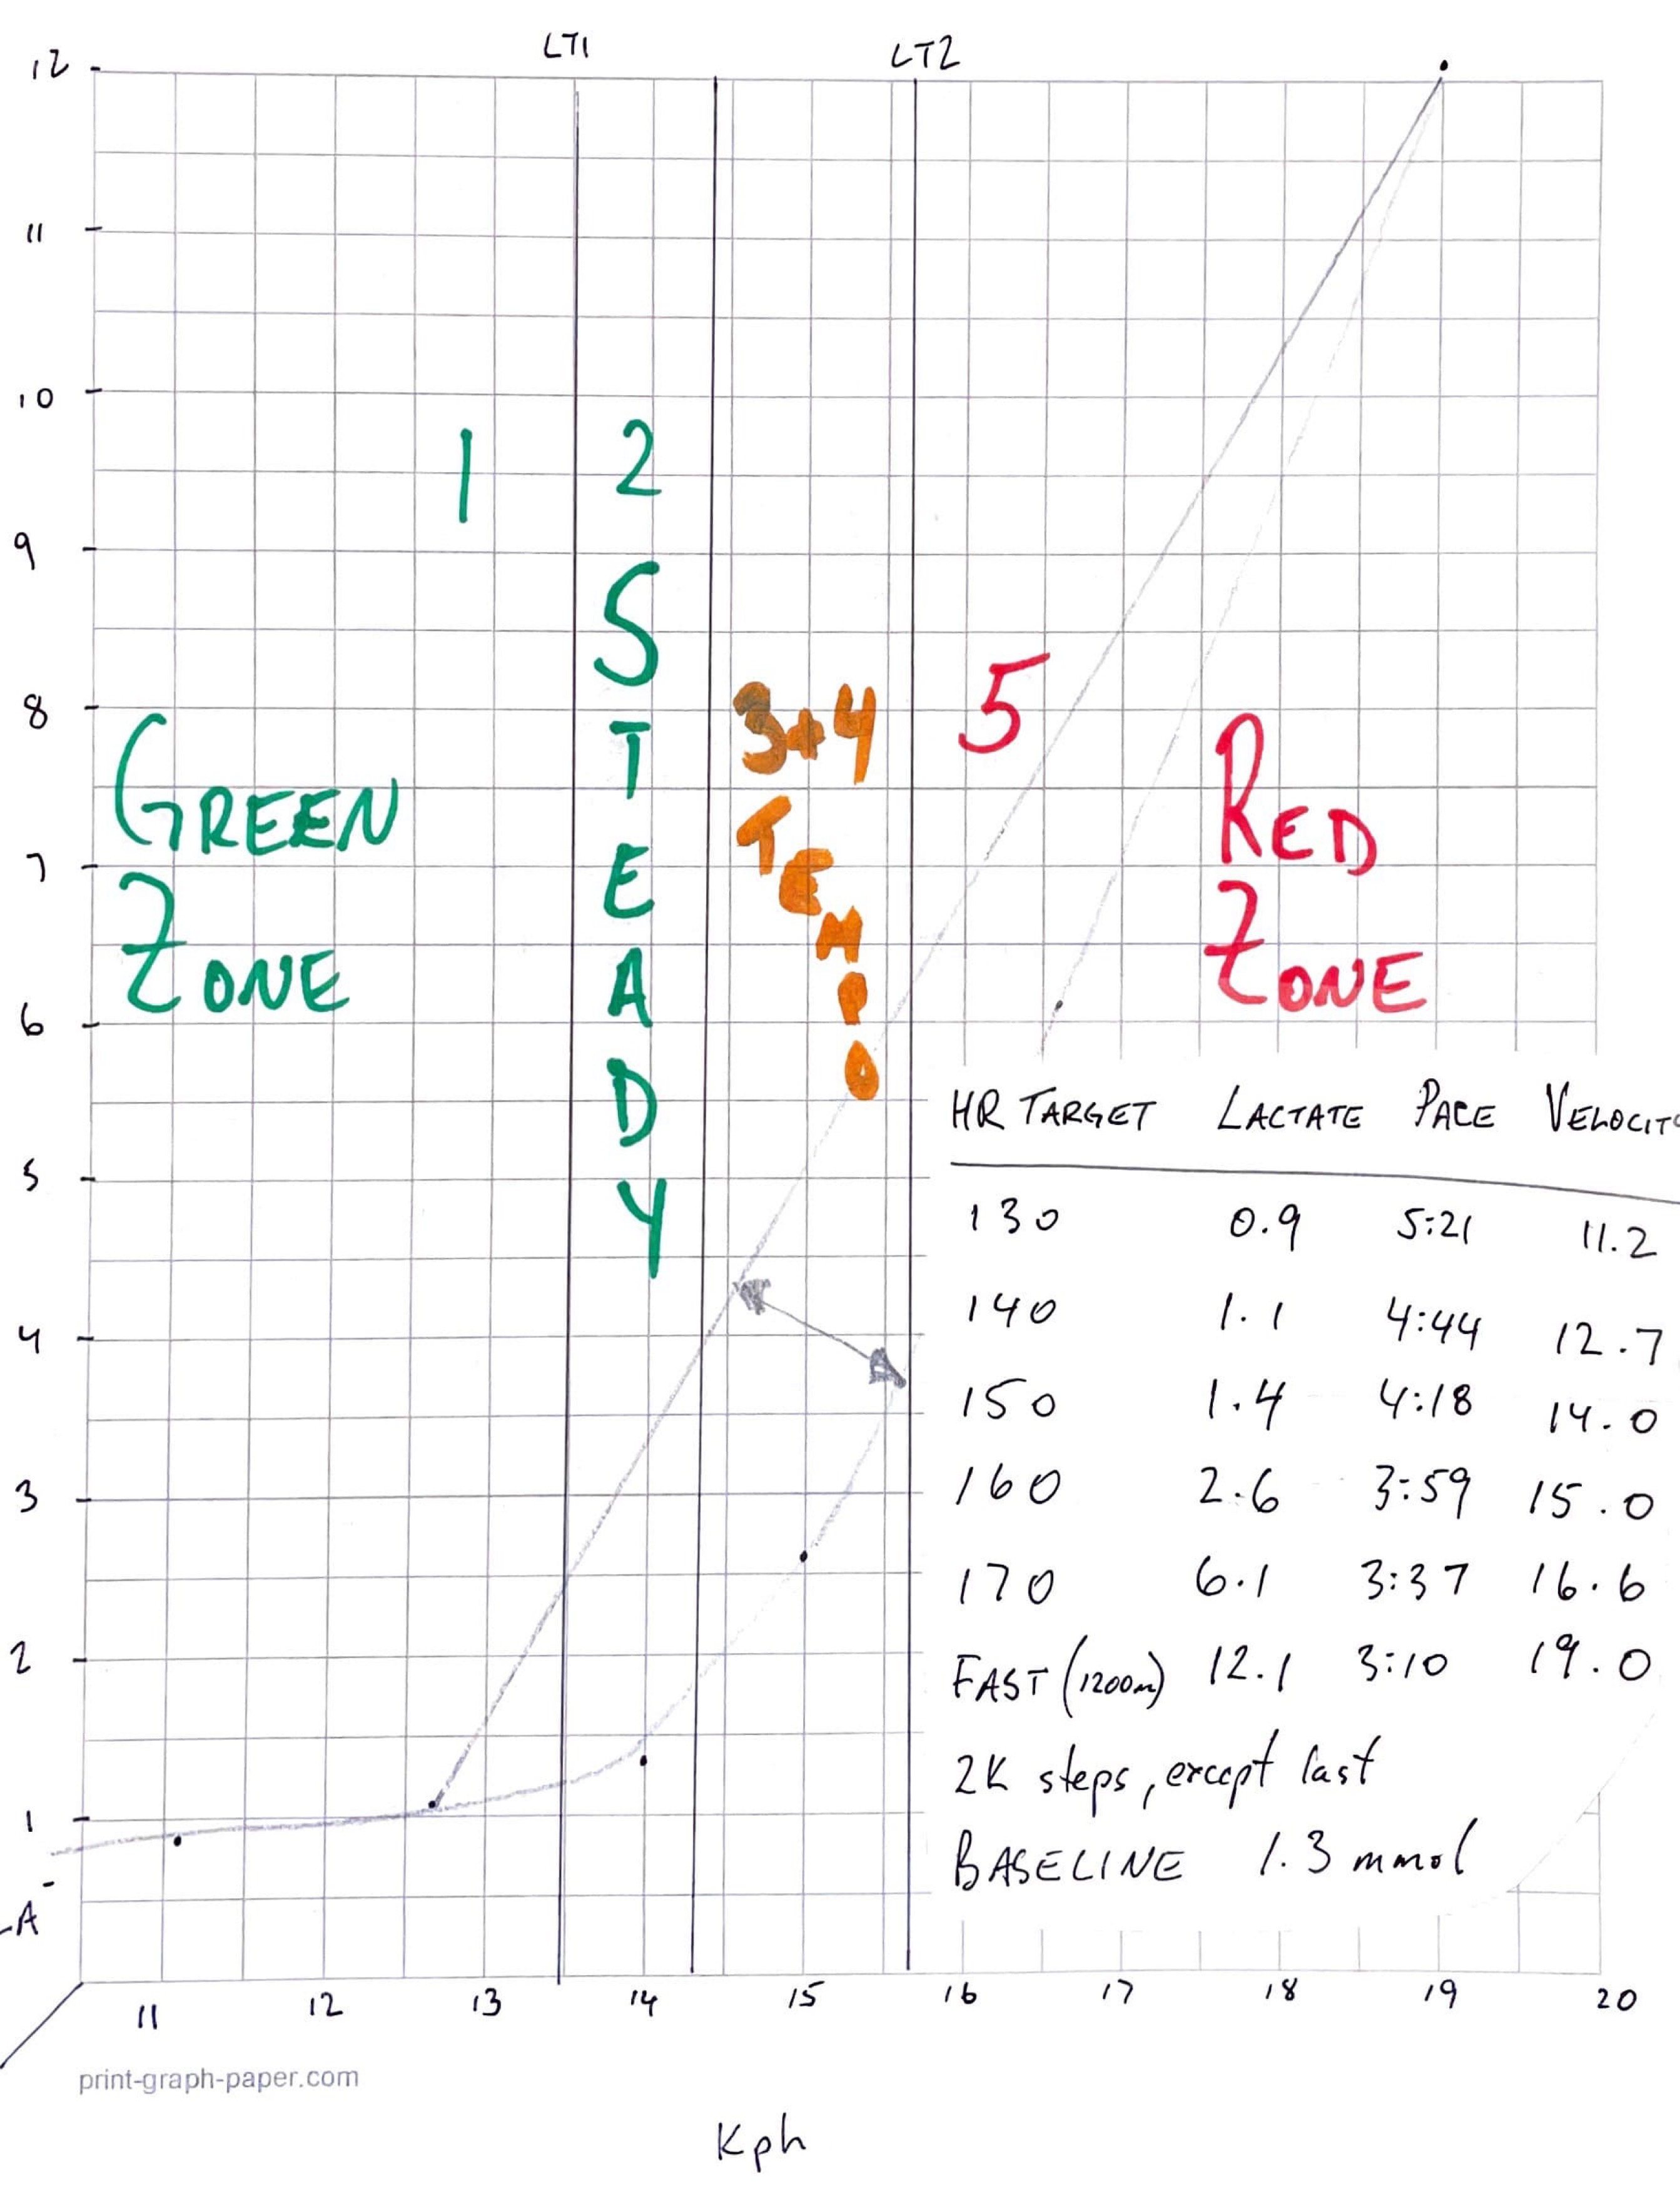 LT1 LT2
12
11
10
9
8
7
6
5
4
3
2
1
LA
1 2
STEADY
3+4
TEMPO
5
GREEN
ZONE
RED
ZONE
HR TARGET LACTATE PACE
130 0.9 5:21 11.2
140 1.1 4:44 12.7
150 1.4 4:18 14.0
160 2.6 3:59 15.0
170 6.1 3:37 16.6
FAST (1200m) 12.1 3:10 19.0
2K steps, except last
BASELINE 1.3 mmol
11 12 13 14 15 16 17 18 19 20
print-graph-paper.com
Kph